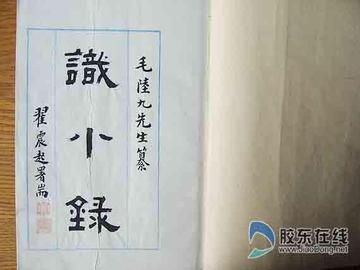 毛陸九先生纂
識小録
翟震起署耑
胶东在线
www.jiaodong.net